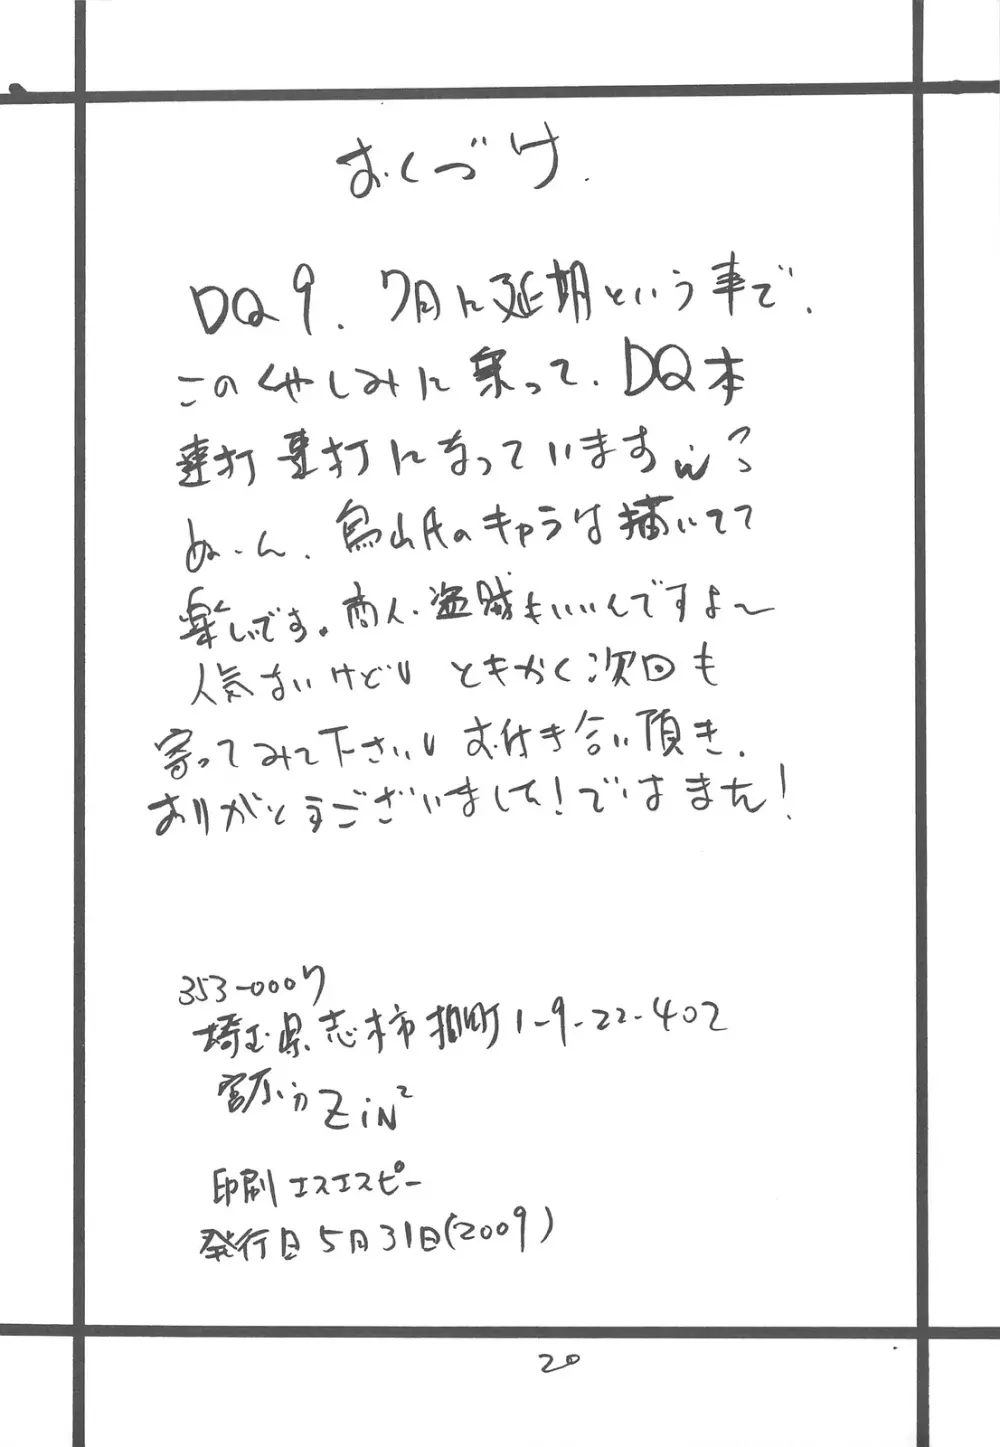 おくづけ.
DQ9. 7月に延期という事で.
このくやしみに乗って、DQ本
連打連打になっていますw?
ぬーん. 鳥山氏のキャラは描いてて
楽しいです。商人・盗賊もいいんですよ〜
人気ないけどいい ともかく次回も
寄ってみて下さいい お付き合い頂き.
ありがとうございました!ではまた!
353-0007
埼玉県志木市柏町1-9-22-402
ZiN²
印刷 エスエスピー
発行日 5月31日(2009)
20